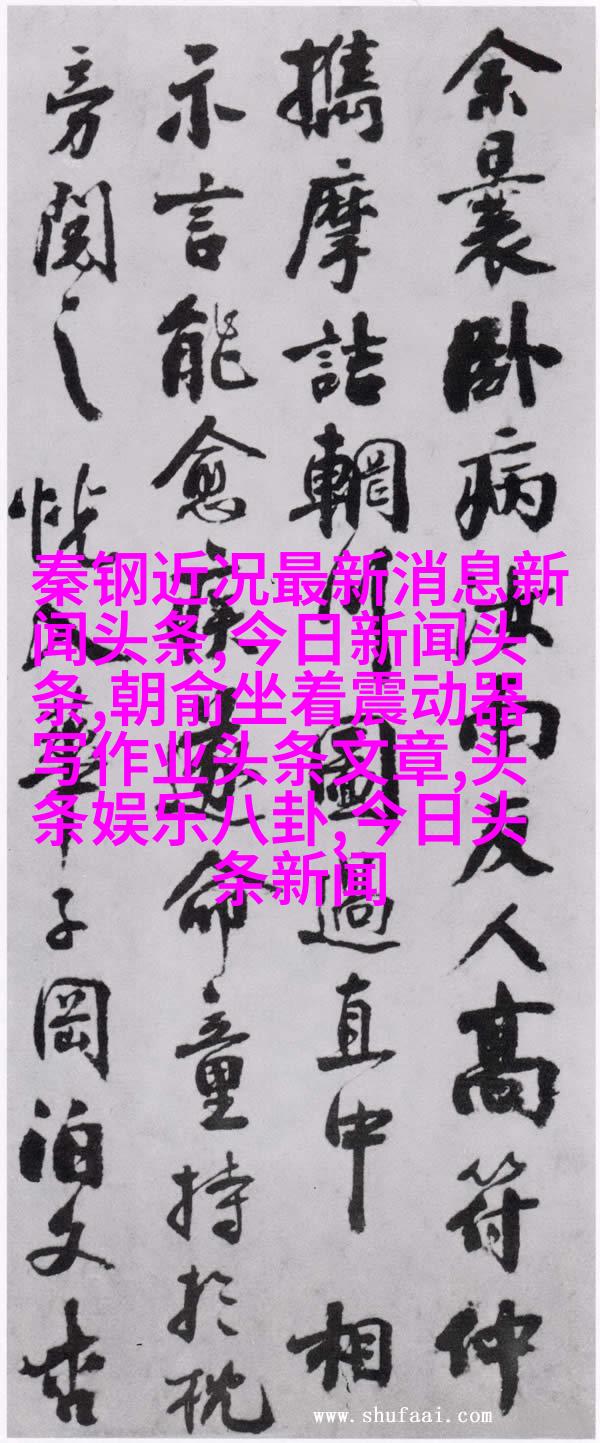 余曩卧病汝南友人高符仲
攜摩詰輞川圖過直中相
示言能愈疾遂命童持於枕
旁閱之恍入華子岡泊文杏
秦钢近况最新消息新
闻头条,今日新闻头
条,朝俞坐着震动器
写作业头条文章,头
条娱乐八卦,今日头
条新闻
www.shufaai.com